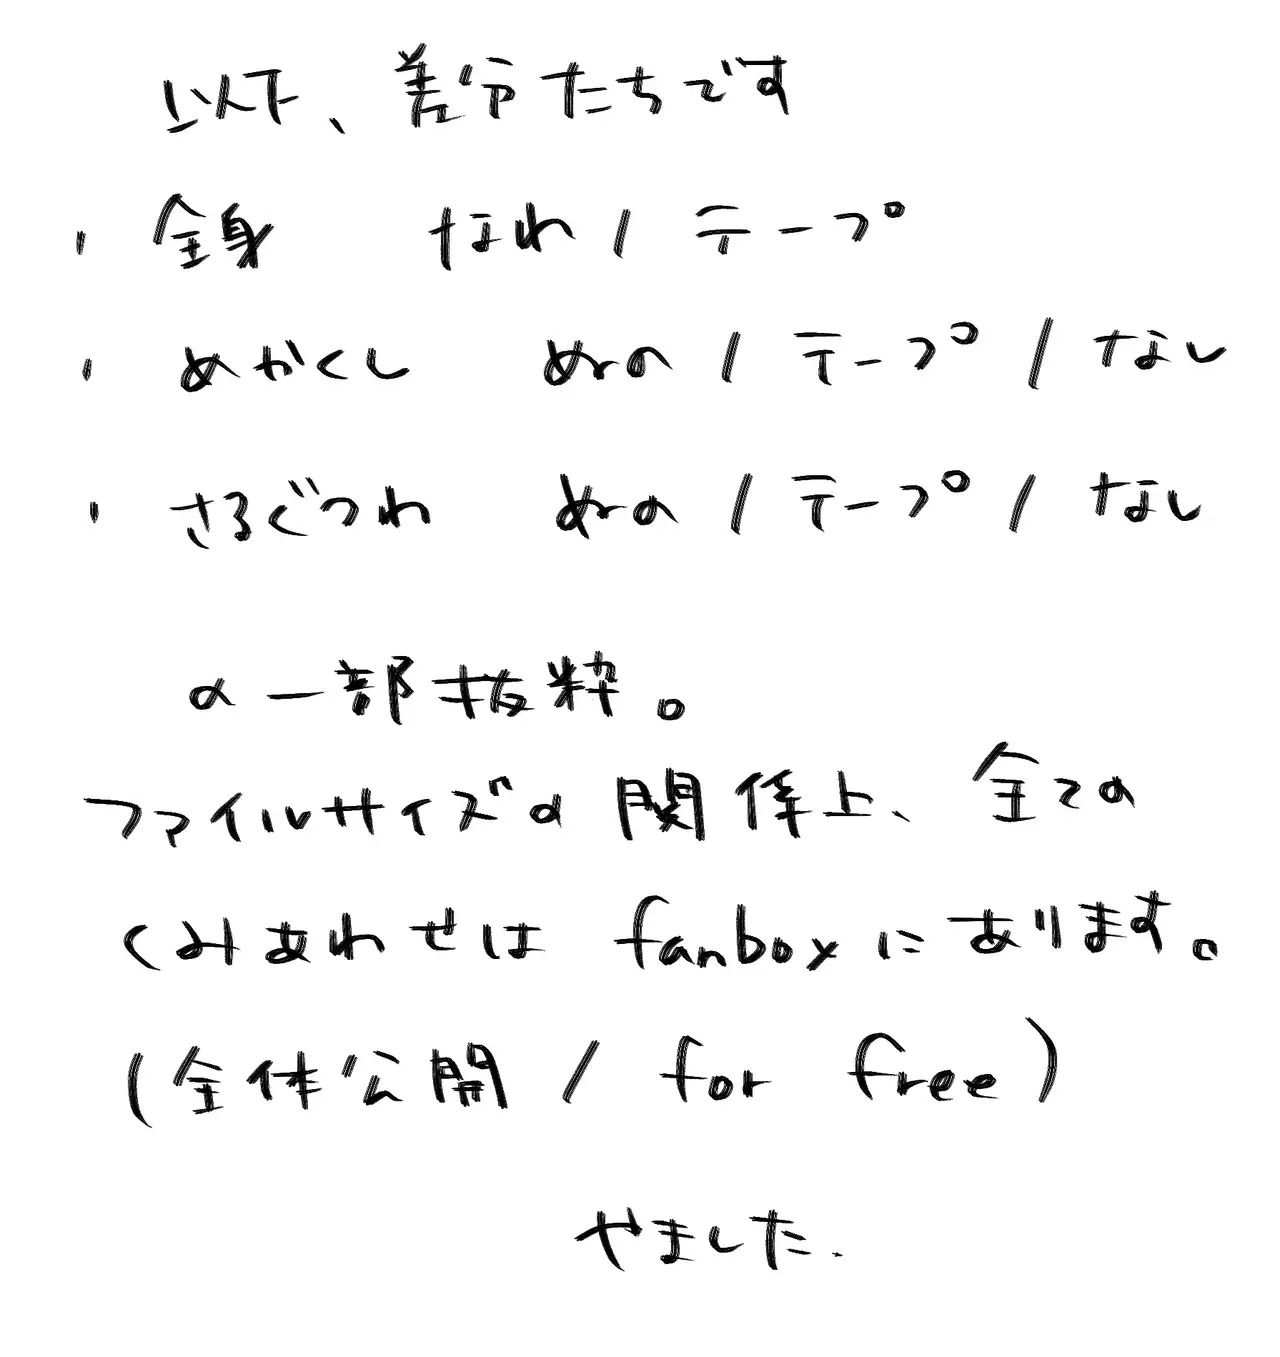 以下、差分たちです
・全身 なわ / テープ
・めかくし ぬの / テープ / なし
・さるぐつわ ぬの / テープ / なし
の一部抜粋。
ファイルサイズの関係上、全ての
くみあわせは fanboxにあります。
(全体公開 / for free)
やました.